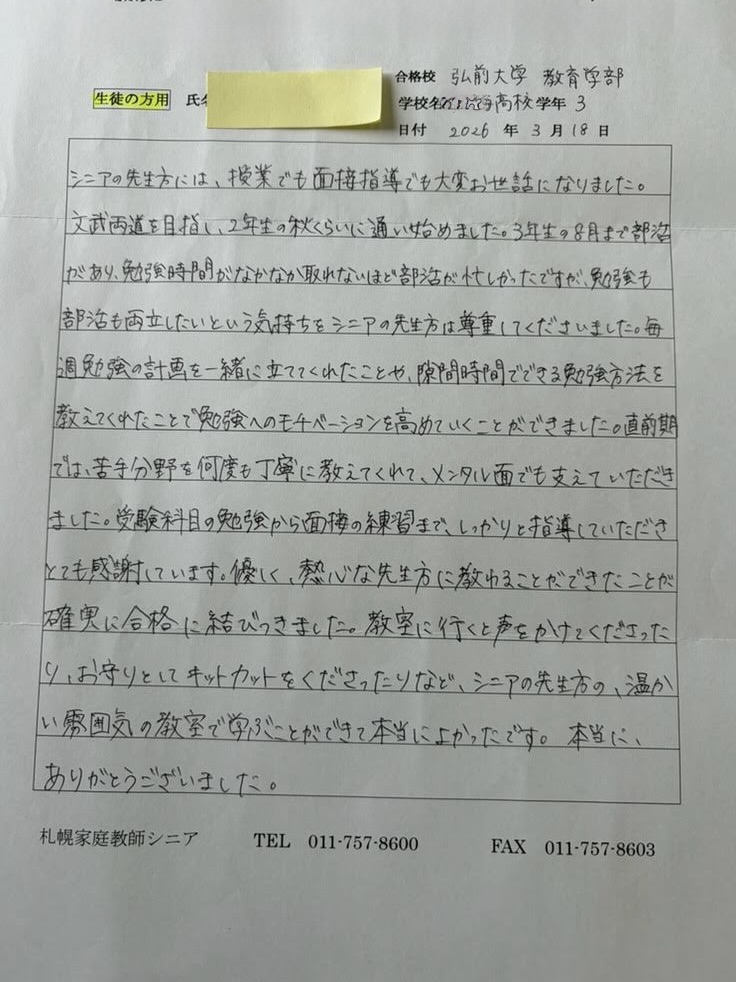 合格校 弘前大学 教育学部
生徒の方用 氏名
学校名 高校 学年 3
日付 2026 年 3 月 18 日
シニアの先生方には、授業でも面接指導でも大変お世話になりました。
文武両道を目指し、2年生の秋くらいに通い始めました。3年生の8月まで部活
があり、勉強時間がなかなか取れないほど部活が忙しかったですが、勉強も
部活も両立したいという気持ちをシニアの先生方は尊重してくださいました。毎
週勉強の計画を一緒に立ててくれたことや、隙間時間でできる勉強方法を
教えてくれたことで勉強へのモチベーションを高めていくことができました。直前期
では、苦手分野を何度も丁寧に教えてくれて、メンタル面でも支えていただき
ました。受験科目の勉強から面接の練習まで、しっかりと指導していただき
とても感謝しています。優しく、熱心な先生方に教わることができたことが
確実に合格に結びつきました。教室に行くと声をかけてくださった
り、お守りとしてキットカットをくださったりなど、シニアの先生方の、温か
い雰囲気の教室で学ぶことができて本当によかったです。本当に、
ありがとうございました。
札幌家庭教師シニア TEL 011-757-8600 FAX 011-757-8603